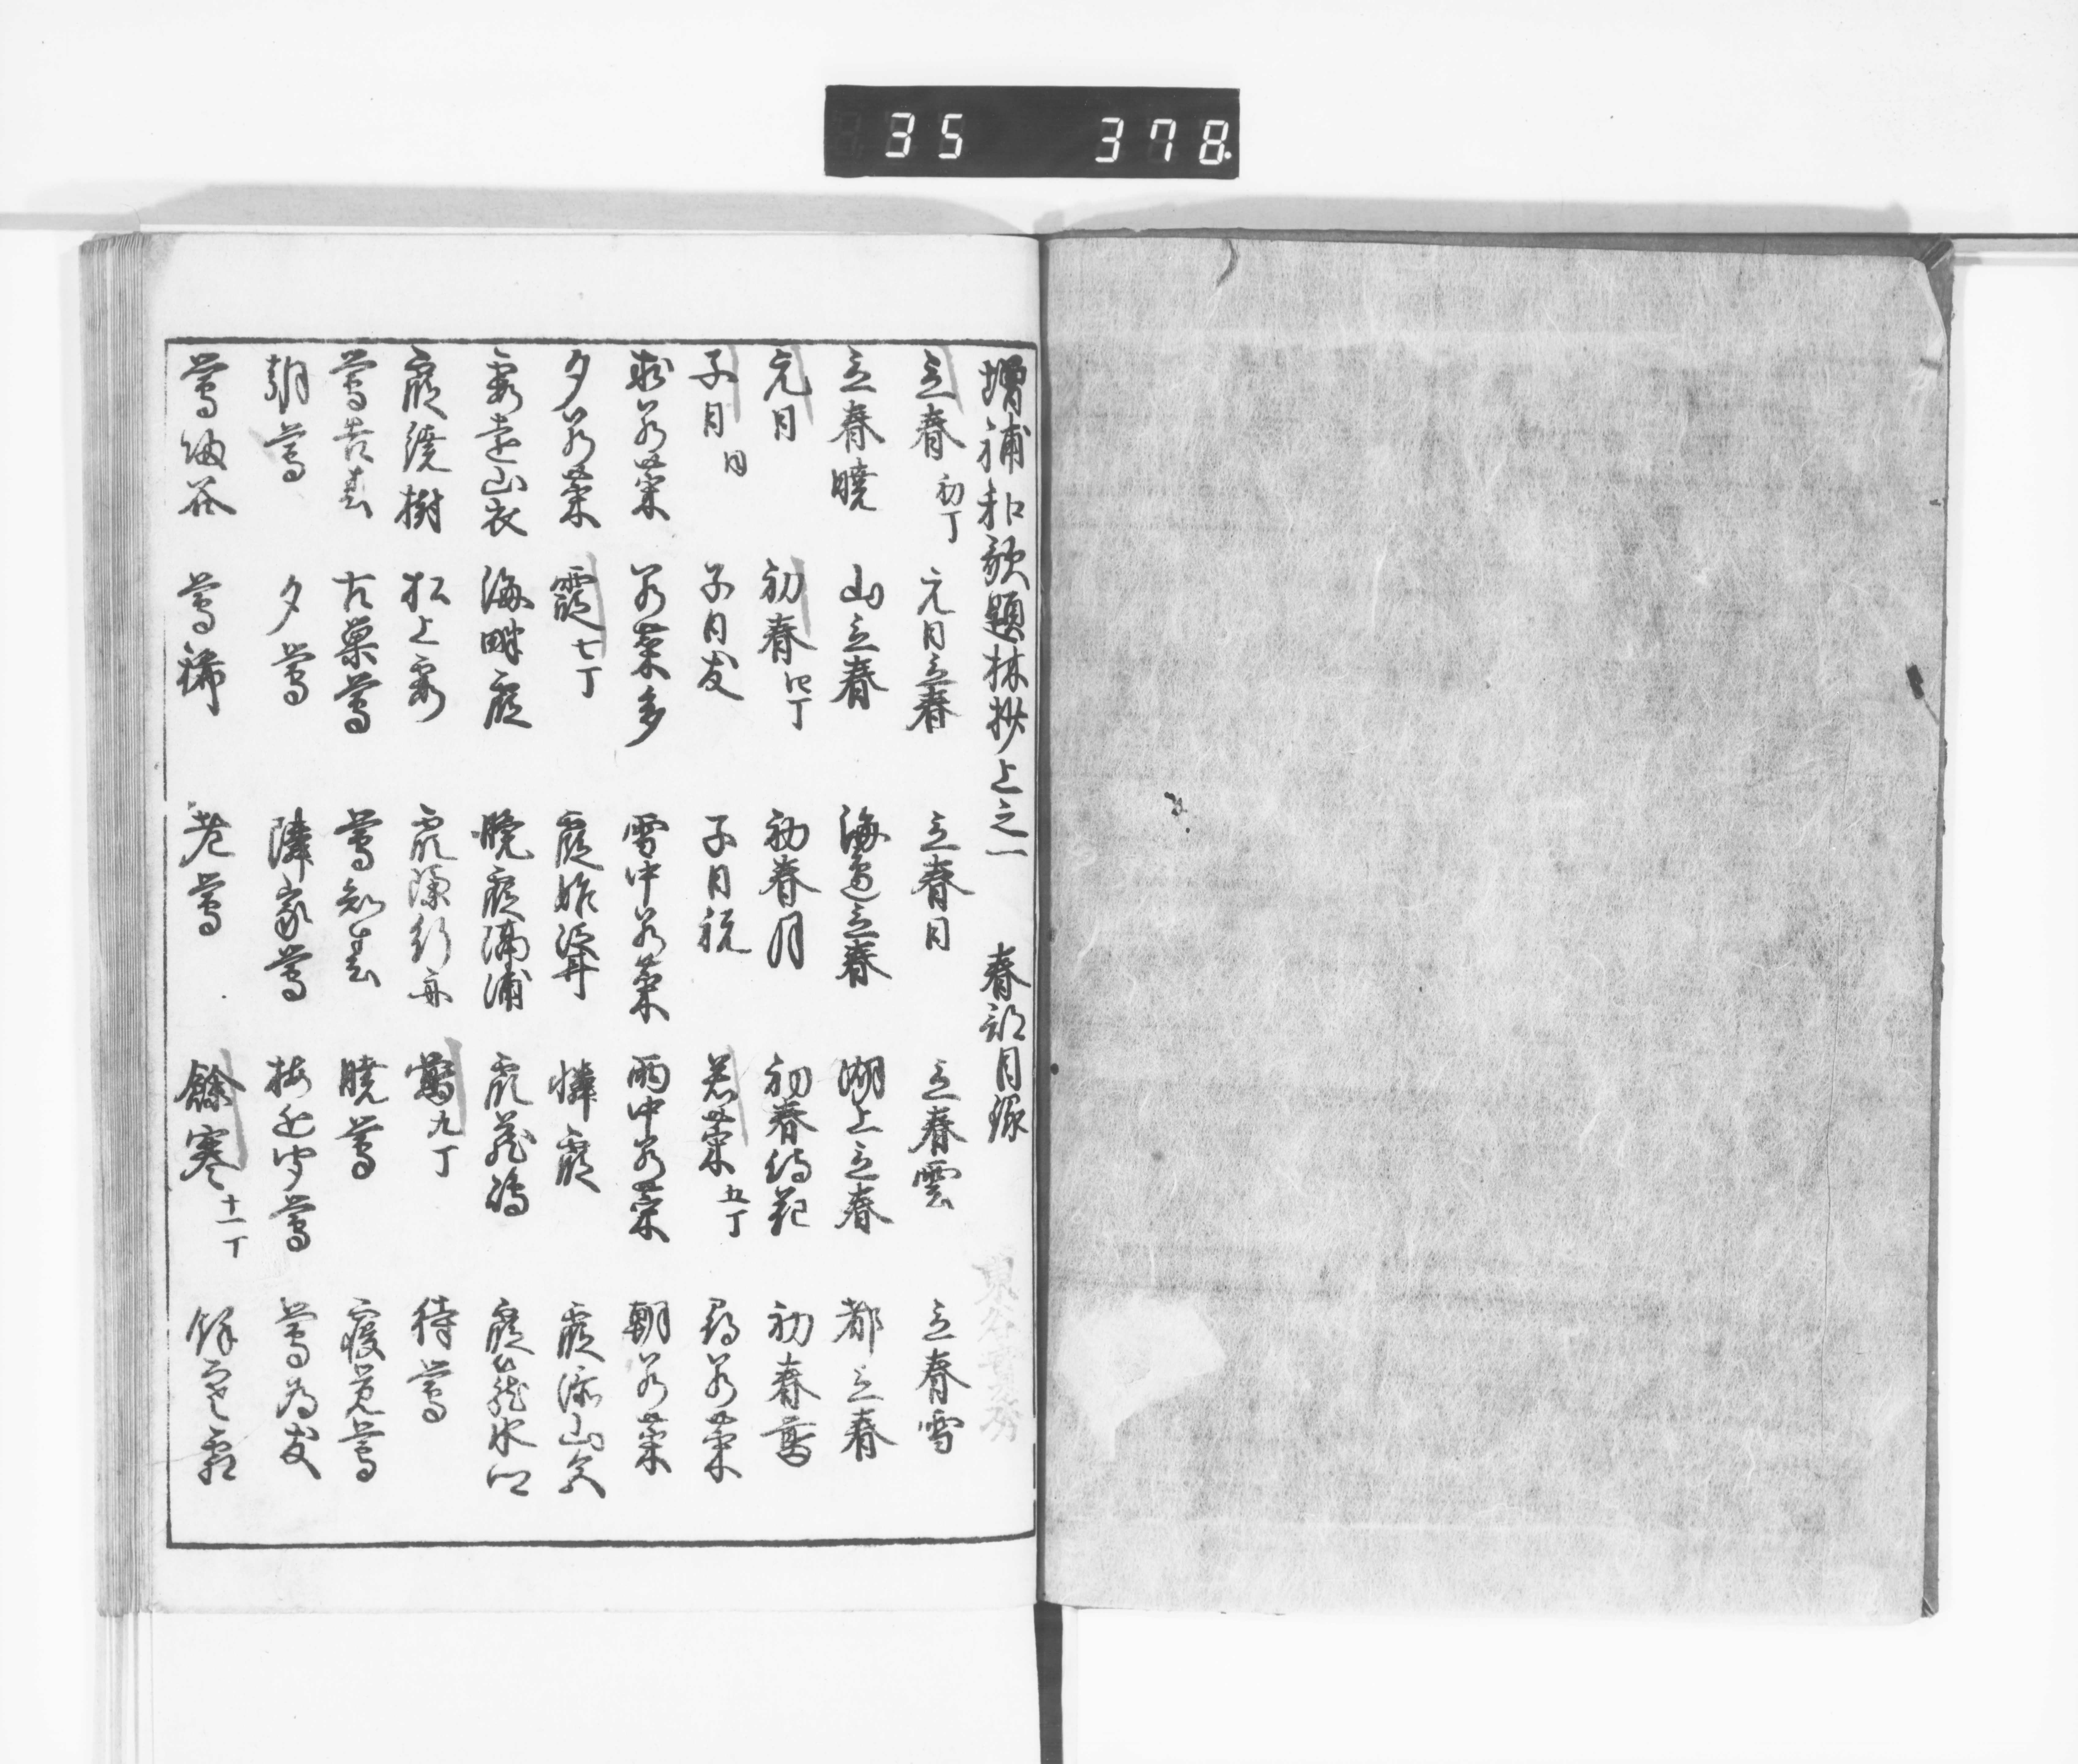 35 378
増補和歌題林抄上之一 春部目録
立春 初丁 元日立春 立春日 立春雲 立春雪
立春暁 山立春 海辺立春 湖上立春 都立春
元日 初春 四丁 初春月 初春待花 初春鶯
子日 同 子日友 子日祝 若菜 五丁 尋若菜
求若菜 若菜多 雪中若菜 雨中若菜 朝若菜
夕若菜 霞 七丁 霞始聳 憐霞 霞添山気
霞遠山衣 海畔霞 晩霞隔浦 霞 霞籠水辺
霞繞樹 松上霞 霞隠行舟 鶯 九丁 待鶯
鶯告春 古巣鶯 鶯知春 暁鶯 寝覚鶯
朝鶯 夕鶯 隣家鶯 梅近聞鶯 鶯為友
鶯帰谷 鶯稀 老鶯 餘寒 十一丁 餘寒霜